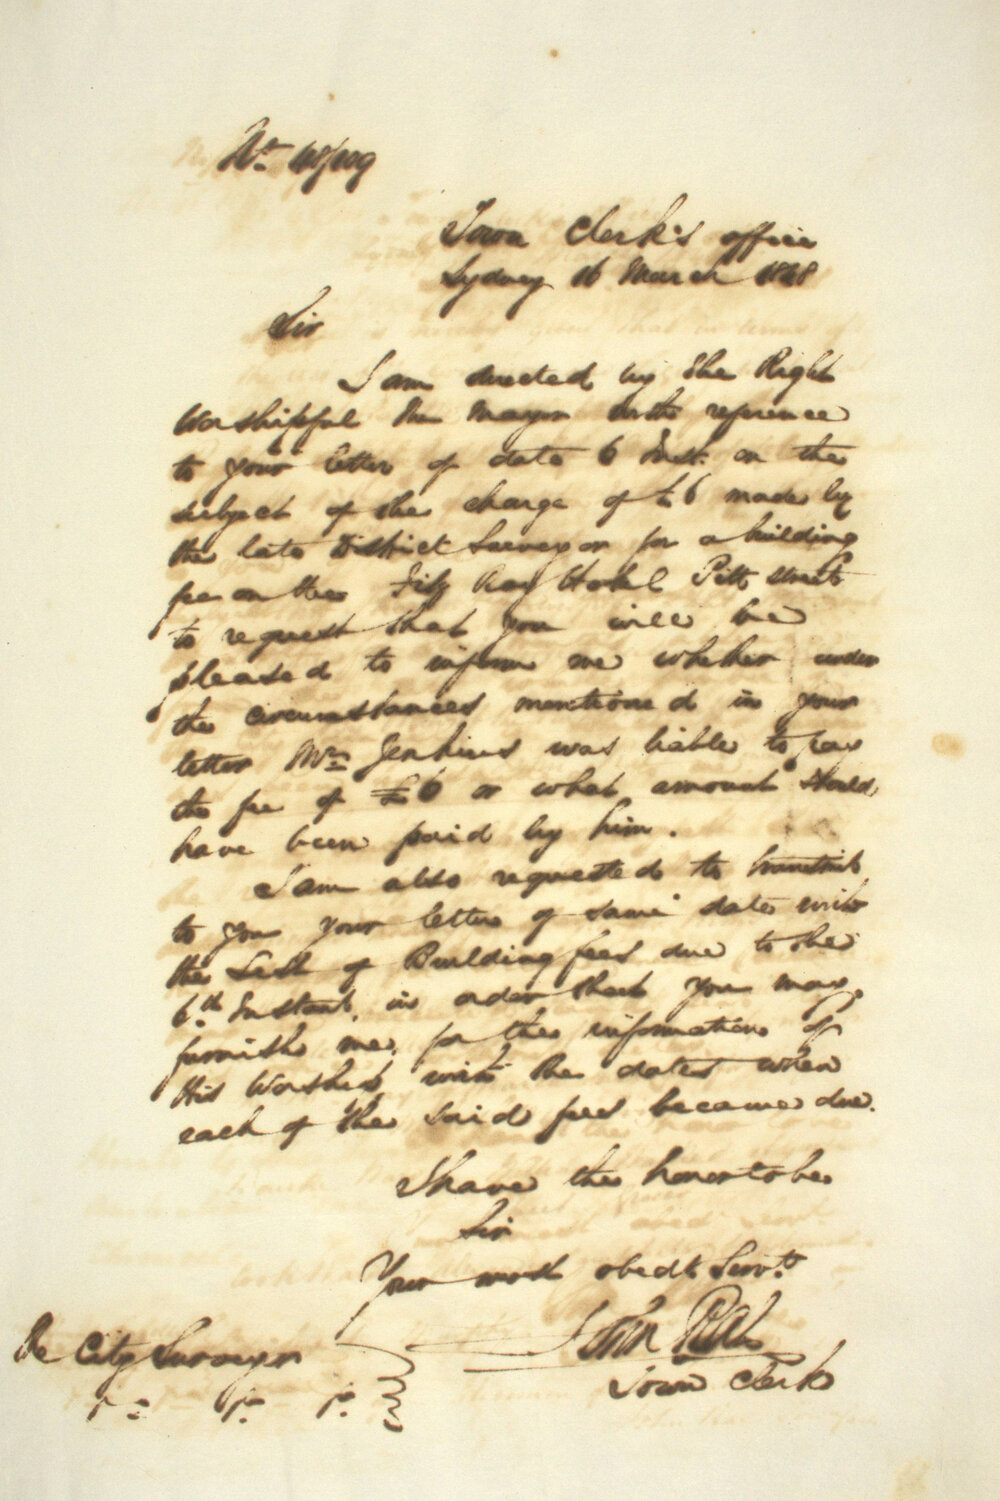 No 48/109
Town Clerk's office
Sydney 16 March 1848
Sir
I am directed by the Right
Worshipful the Mayor with reference
to your letter of date 6 Inst. on the
subject of the charge of £6 made by
the late District Surveyor for a building
fee on the Fitz Roy Hotel Pitt street
to request that you will be
pleased to inform me whether under
the circumstances mentioned in your
letter Mr Jenkins was liable to pay
the fee of £6 or what amount should
have been paid by him.
I am also requested to transmit
to you your letter of same date with
the List of Building fees due to the
6th Instant, in order that you may
furnish me, for the information of
His Worship with the dates when
each of the said fees became due.
I have the honor to be
Sir
Your most obedt Servt
John Rae
Town Clerk
The City Surveyor